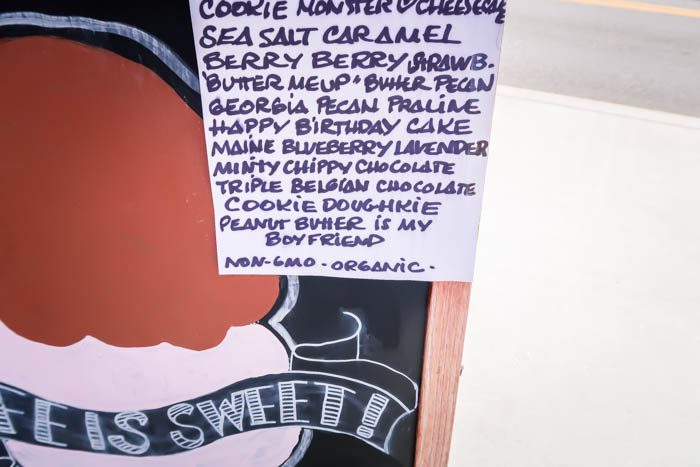 COOKIE MONSTER ♡ CHEESECAKE
SEA SALT CARAMEL
BERRY BERRY STRAWB.
"BUTTER ME UP" BUTTER PECAN
GEORGIA PECAN PRALINE
HAPPY BIRTHDAY CAKE
MAINE BLUEBERRY LAVENDER
MINTY CHIPPY CHOCOLATE
TRIPLE BELGIAN CHOCOLATE
COOKIE DOUGHKIE
PEANUT BUTTER IS MY
BOYFRIEND
NON-GMO - ORGANIC -
FE IS SWEET!